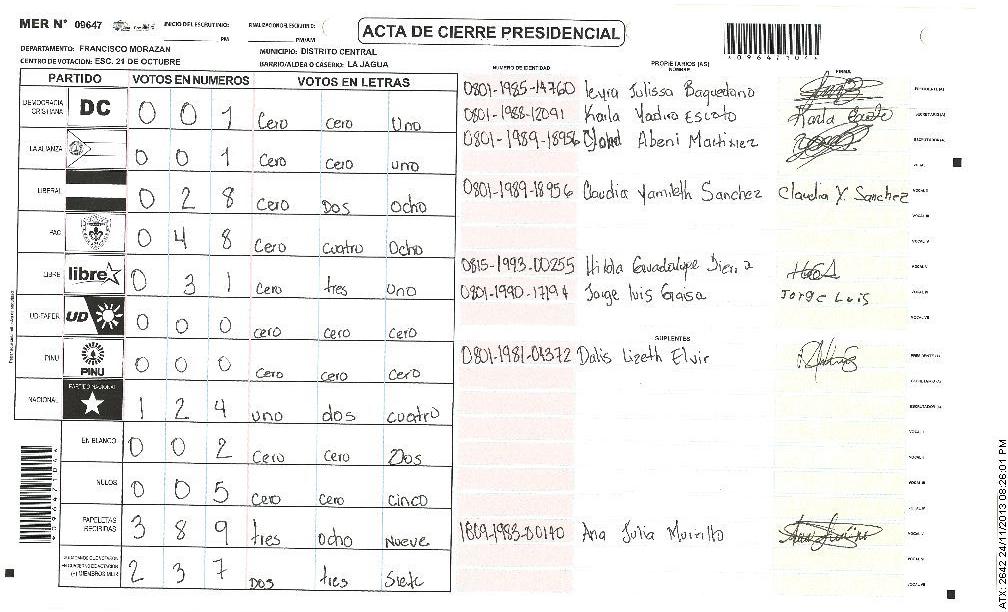 MER N° 09647
INICIO DEL ESCRUTINIO:
PM
FINALIZACION DEL ESCRUTINIO:
PM/AM
ACTA DE CIERRE PRESIDENCIAL
DEPARTAMENTO: FRANCISCO MORAZAN
MUNICIPIO: DISTRITO CENTRAL
CENTRO DE VOTACION: ESC. 21 DE OCTUBRE
BARRIO/ALDEA O CASERIO: LA JAGUA
PARTIDO VOTOS EN NUMEROS VOTOS EN LETRAS
NUMERO DE IDENTIDAD PROPIETARIOS (AS) NOMBRE FIRMA
DEMOCRACIA CRISTIANA DC 0 0 1 Cero cero Uno
LA ALIANZA 0 0 1 Cero Cero uno
LIBERAL 0 2 8 Cero Dos ocho
PAC 0 4 8 Cero cuatro Ocho
LIBRE libre 0 3 1 Cero tres uno
UD-FAPER UD 0 0 0 cero cero Cero
PINU PINU 0 0 0 Cero cero Cero
NACIONAL PARTIDO NACIONAL 1 2 4 uno dos cuatro
EN BLANCO 0 0 2 Cero Cero Dos
NULOS 0 0 5 Cero Cero Cinco
PAPELETAS RECIBIDAS 3 8 9 tres ocho Nueve
2 3 7 Dos tres Siete
0801-1985-14760 Julissa Baquedano
0801-1988-12091 Karla Yadira Escoto
0801-1989-18956 Abeni Martinez
0801-1989-18956 Claudia Yamileth Sanchez Claudia Y. Sanchez
0815-1993-00255 Guadalupe
0801-1990-17194 Jorge luis Jorge Luis
SUPLENTES
0801-1981-04372 Dalis Lizeth Elvir
1809-1983-00140 Ana Julia Murillo
ATX: 2642 24/11/2013 08:26:01 PM